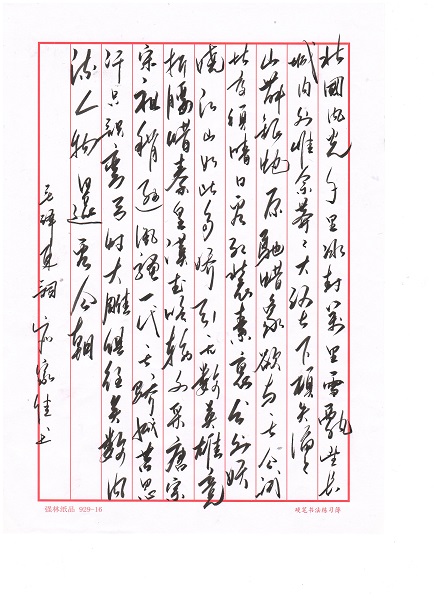 北國风光千里冰封萬里雪飄望长
城内外惟余莽莽大河上下頓失滔滔
山舞銀蛇原馳蜡象欲与天公试
比高須晴日看红装素裹分外妖
嬈江山如此多娇引无數英雄竞
折腰惜秦皇漢武略输文采唐宗
宋祖稍逊風骚一代天骄成吉思
汗只識弯弓射大雕俱往矣数风
流人物還看今朝
家佳书
纸品 929-16
硬笔书法练习簿